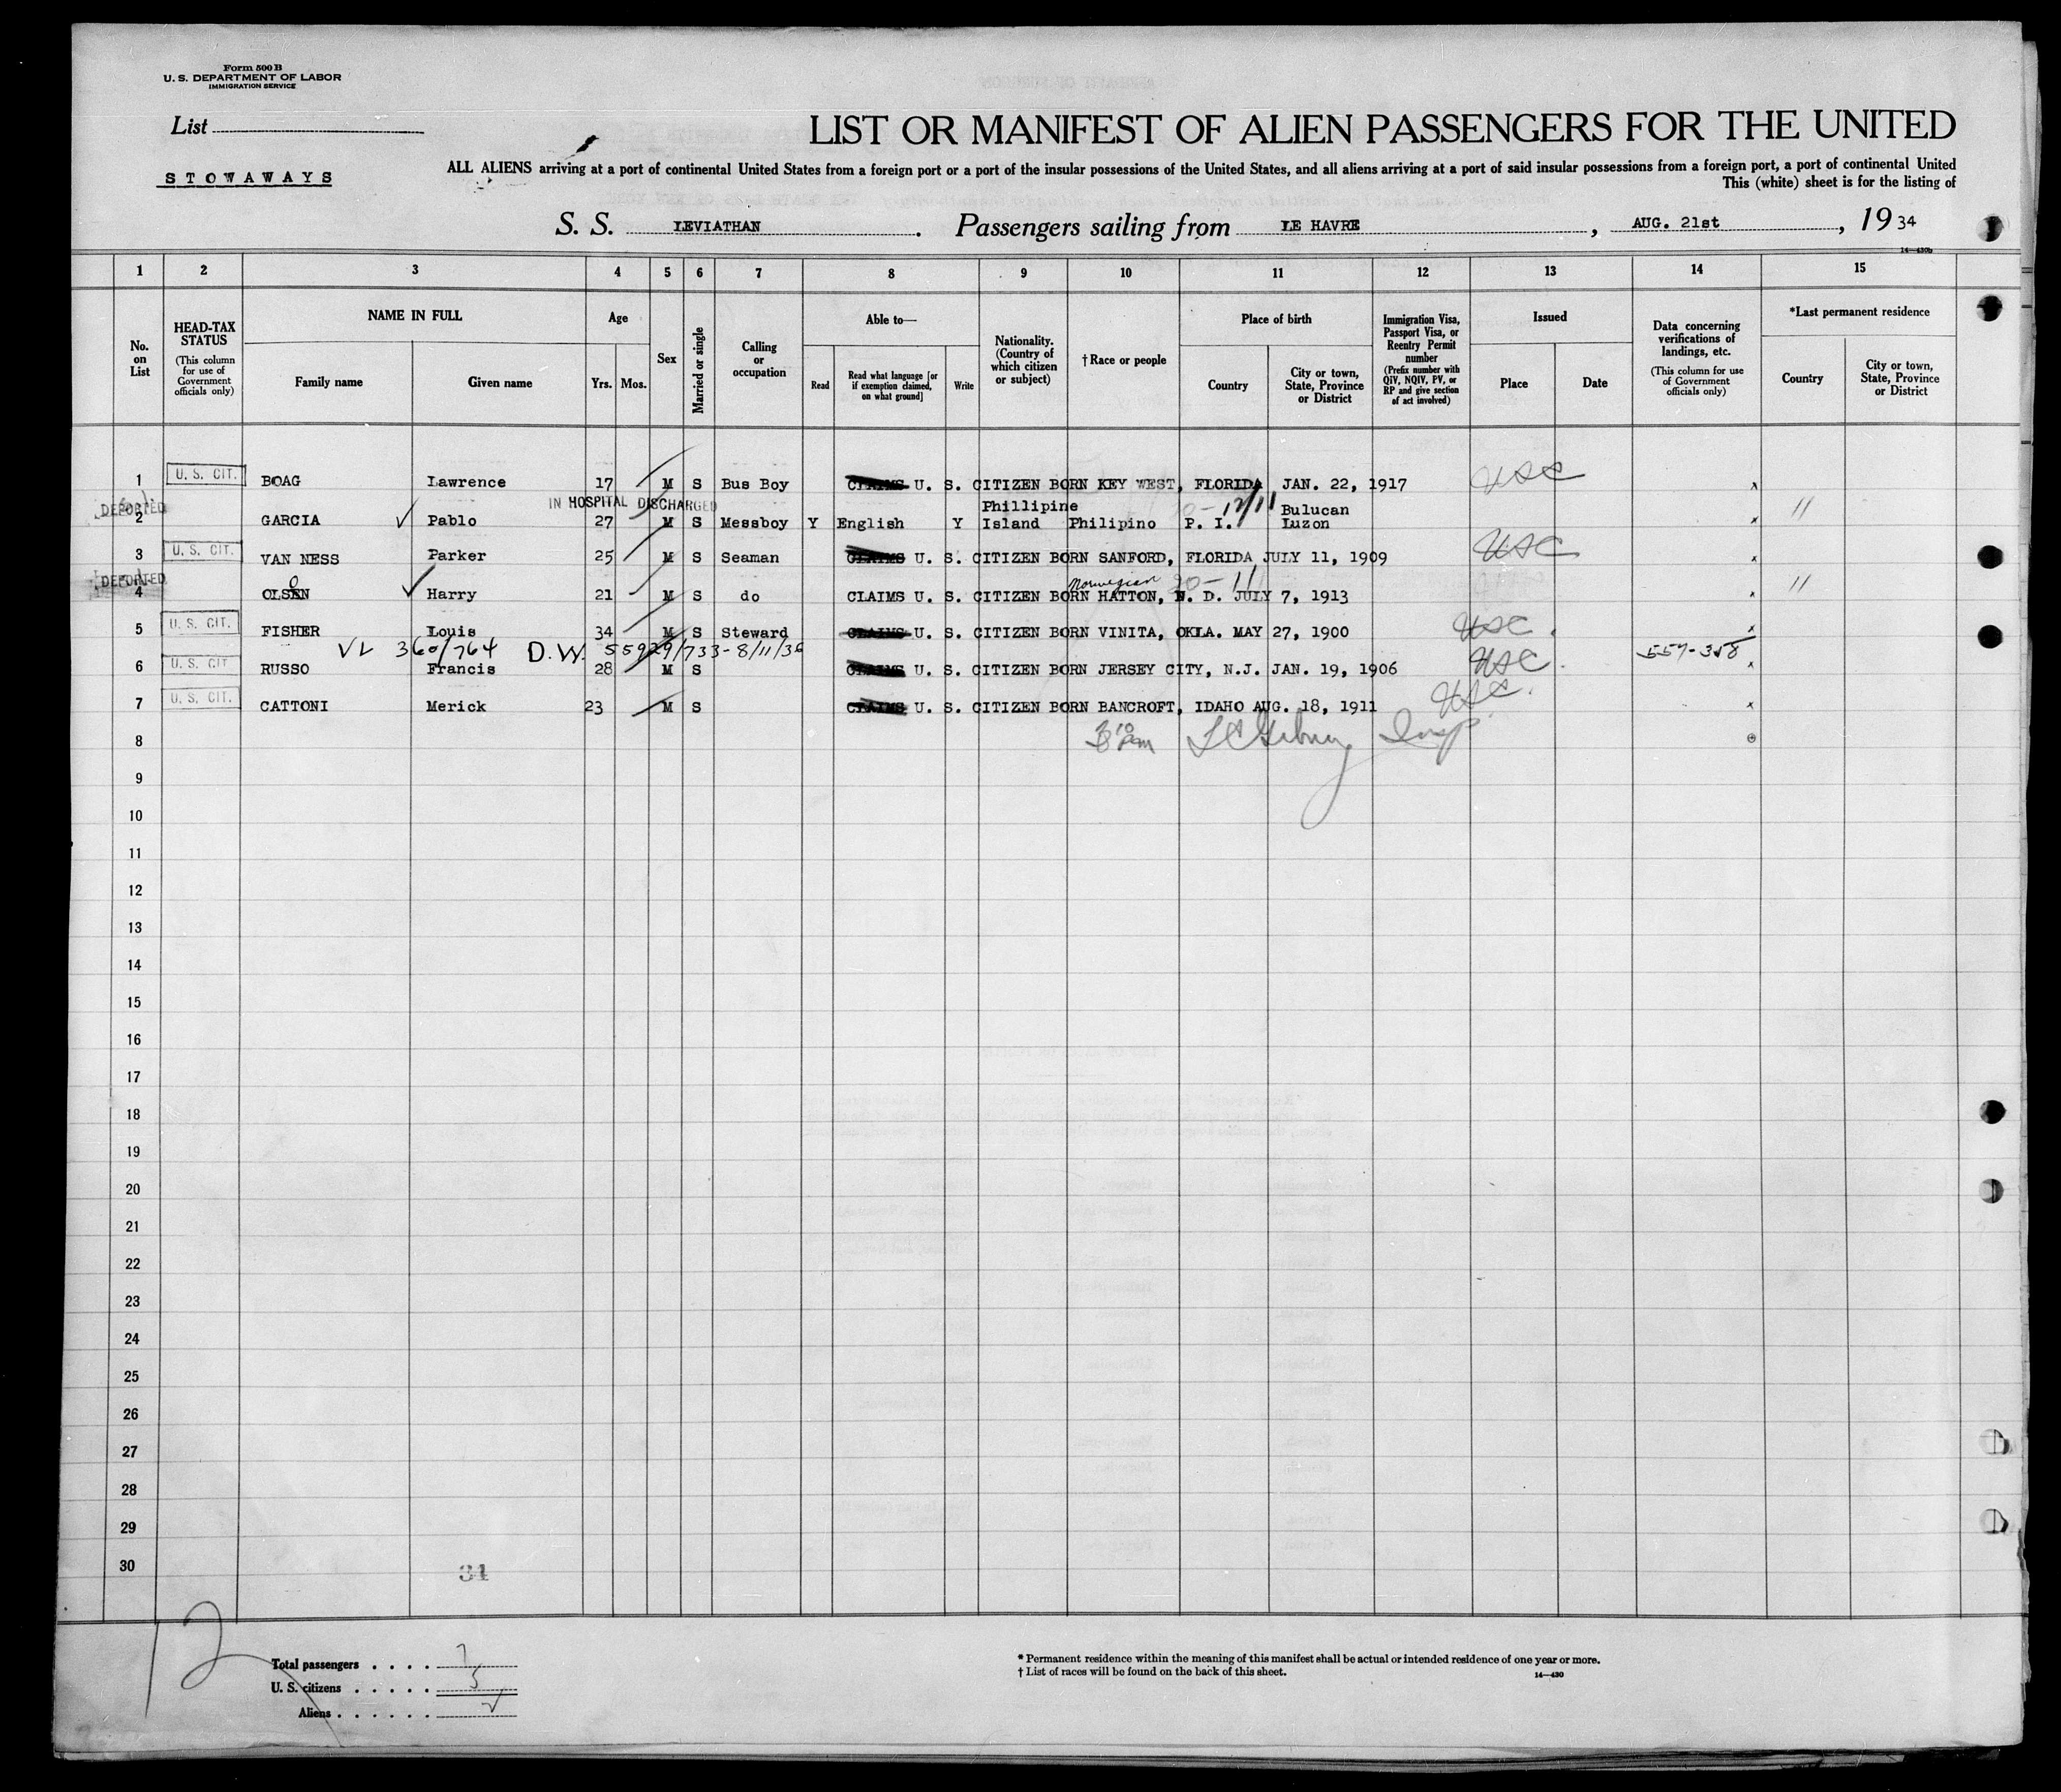 Form 500 B
U. S. DEPARTMENT OF LABOR
IMMIGRATION SERVICE
List
STOWAWAYS
LIST OR MANIFEST OF ALIEN PASSENGERS FOR THE UNITED
ALL ALIENS arriving at a port of continental United States from a foreign port or a port of the insular possessions of the United States, and all aliens arriving at a port of said insular possessions from a foreign port, a port of continental United
This (white) sheet is for the listing of
S. S. LEVIATHAN. Passengers sailing from LE HAVRE, AUG. 21st, 19 34
14—430b
1 2 3 4 5 6 7 8 9 10 11 12 13 14 15
No. on List
HEAD-TAX STATUS (This column for use of Government officials only)
NAME IN FULL
Family name
Given name
Age
Yrs. Mos.
Sex
Married or single
Calling or occupation
Able to—
Read
Read what language [or if exemption claimed, on what ground]
Write
Nationality. (Country of which citizen or subject)
† Race or people
Place of birth
Country
City or town, State, Province or District
Immigration Visa, Passport Visa, or Reentry Permit number (Prefix number with QIV, NQIV, PV, or RP and give section of act involved)
Issued
Place
Date
Data concerning verifications of landings, etc. (This column for use of Government officials only)
*Last permanent residence
Country
City or town, State, Province or District
1 U. S. CIT. BOAG Lawrence 17 M S Bus Boy CLAIMS U. S. CITIZEN BORN KEY WEST, FLORIDA JAN. 22, 1917 USC x
DEPORTED IN HOSPITAL DISCHARGED Phillipine 12/11 Bulucan
2 GARCIA Pablo 27 M S Messboy Y English Y Island Philipino P. I. Luzon x 11
3 U. S. CIT. VAN NESS Parker 25 M S Seaman CLAIMS U. S. CITIZEN BORN SANFORD, FLORIDA JULY 11, 1909 USC x
DEPORTED o Norwegian 20-11
4 OLSEN Harry 21 M S do CLAIMS U. S. CITIZEN BORN HATTON, N. D. JULY 7, 1913 x 11
5 U. S. CIT. FISHER Louis 34 M S Steward CLAIMS U. S. CITIZEN BORN VINITA, OKLA. MAY 27, 1900 USC. x
VL 360/764 D.W. 55929/733-8/11/36 557-358
6 U. S. CIT RUSSO Francis 28 M S CLAIMS U. S. CITIZEN BORN JERSEY CITY, N.J. JAN. 19, 1906 USC. x
7 U. S. CIT. CATTONI Merick 23 M S CLAIMS U. S. CITIZEN BORN BANCROFT, IDAHO AUG. 18, 1911 USC. x
8 Insp.
9
10
11
12
13
14
15
16
17
18
19
20
21
22
23
24
25
26
27
28
29
30
31
12
Total passengers . . . . 7
U. S. citizens . . . . . 5
Aliens . . . . . .
* Permanent residence within the meaning of this manifest shall be actual or intended residence of one year or more.
† List of races will be found on the back of this sheet.
14—430